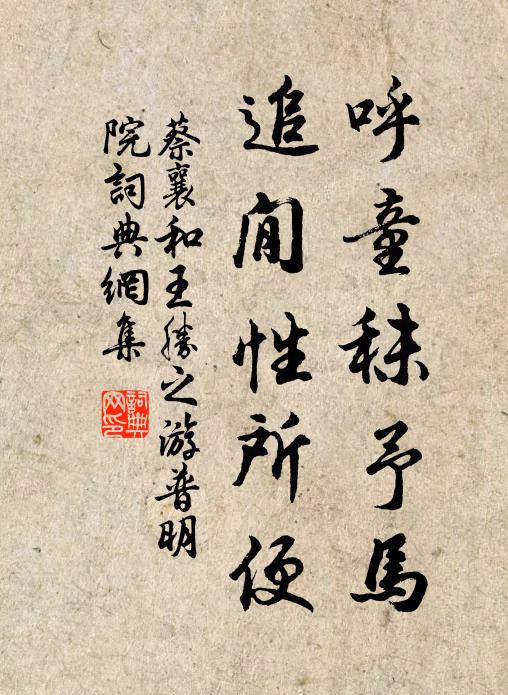 呼童秣予馬
追閒性所便
蔡襄和王勝之游普明
院詞典網集
詞典網印